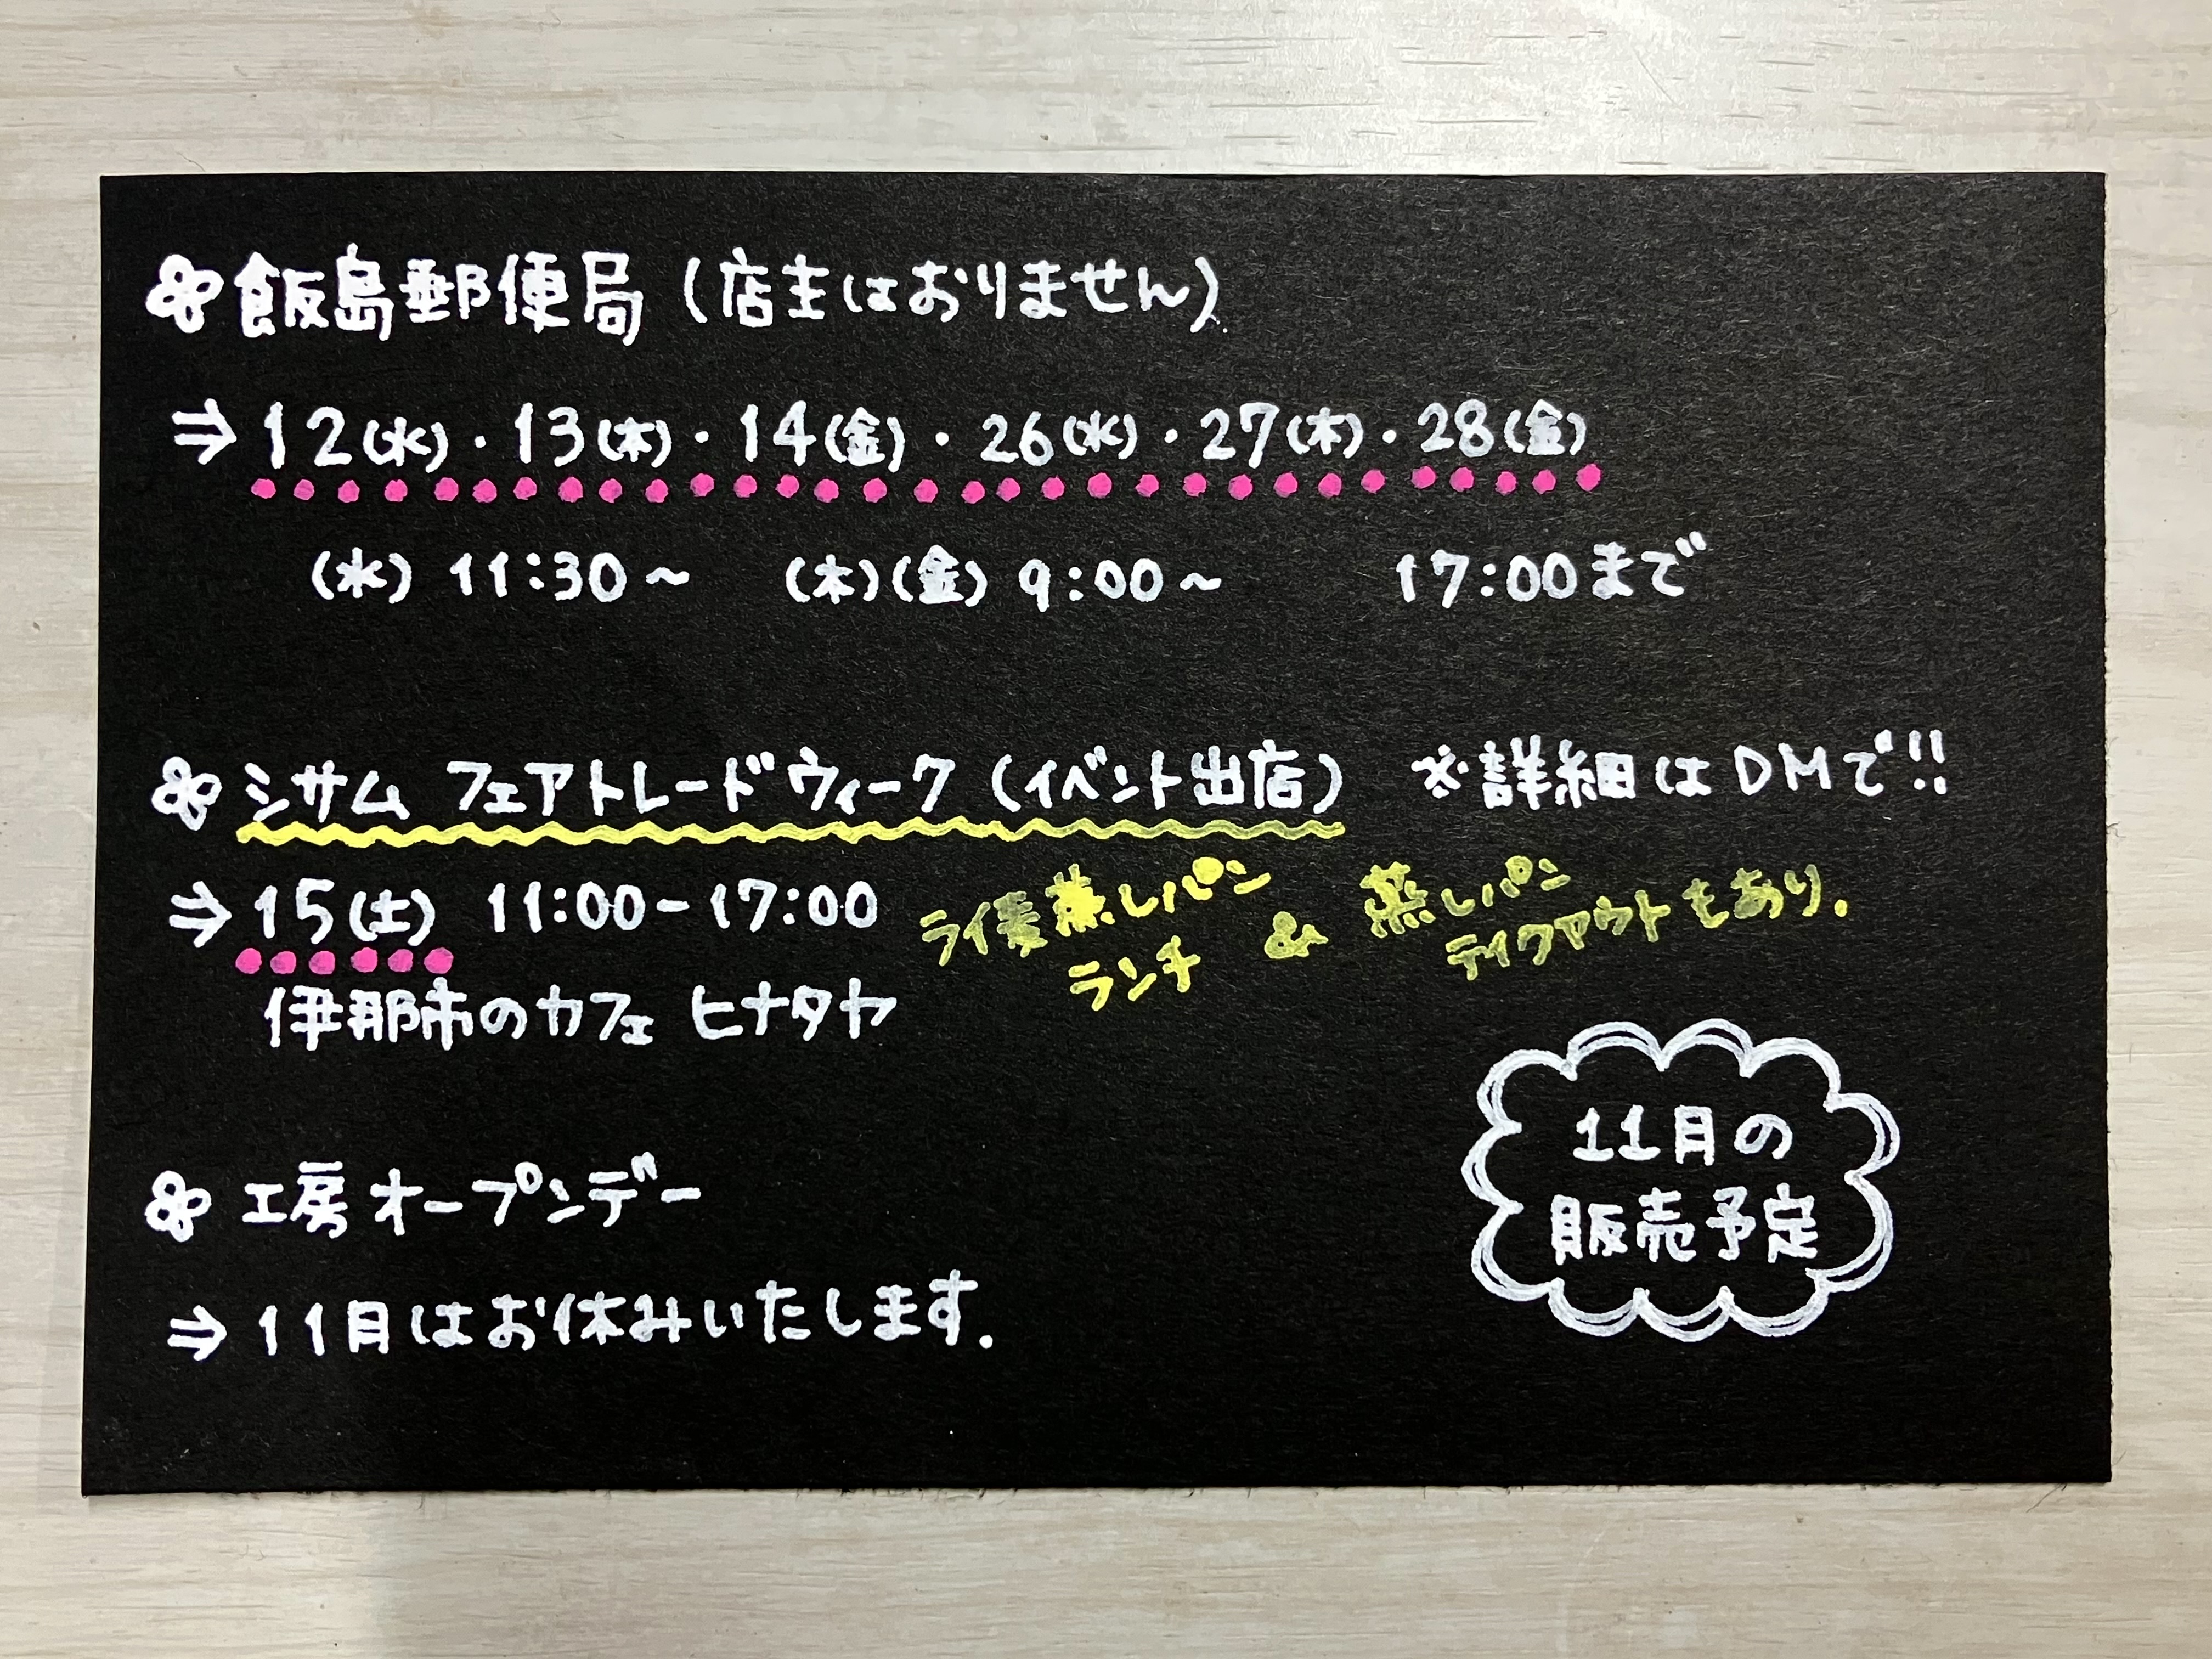 飯島郵便局（店主はおりません）
⇒ 12(水)・13(木)・14(金)・26(水)・27(木)・28(金)
(水) 11:30～ (木)(金) 9:00～ 17:00まで
シサム フェアトレードウィーク（イベント出店） ※詳細はDMで!!
⇒ 15(土) 11:00-17:00
ライ麦蒸しパン
ランチ
&
蒸しパン
テイクアウトもあり.
伊那市のカフェ ヒナタヤ
工房オープンデー
⇒ 11月はお休みいたします.
11月の
販売予定